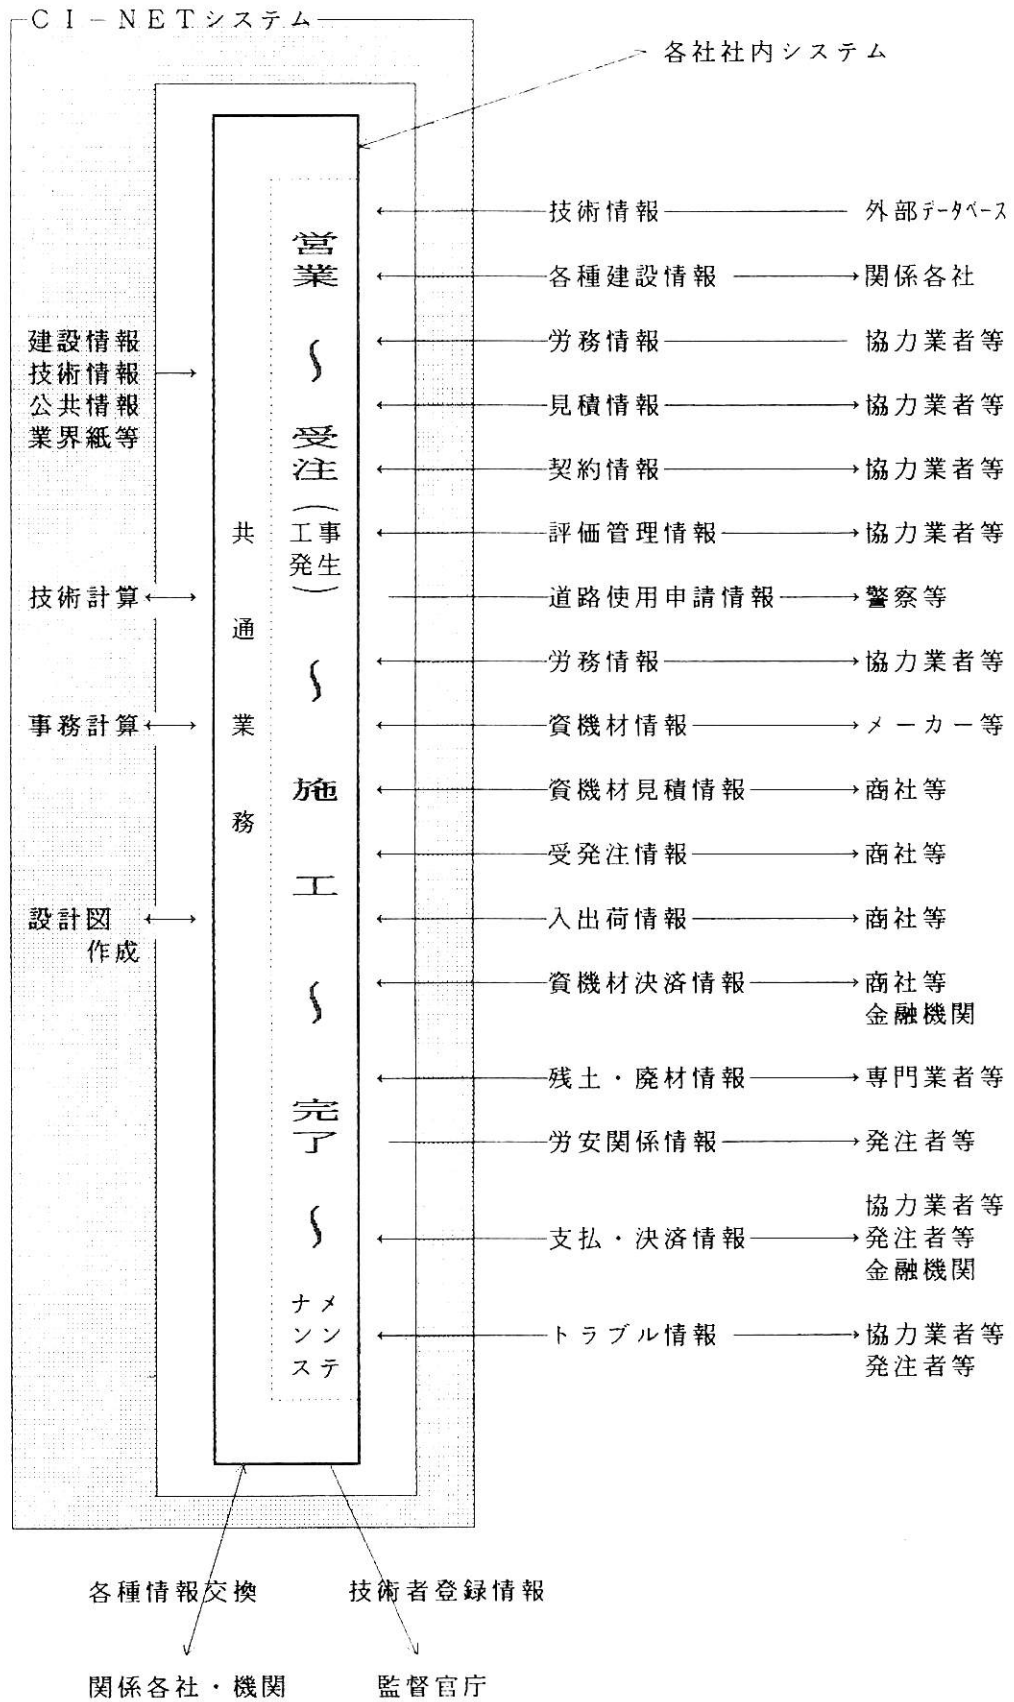 CI-NETシステム
各社社内システム
建設情報
技術情報
公共情報
業界紙等
技術計算
事務計算
設計図
作成
共通業務
営業
〜
受注
(工事
発生)
〜
施工
〜
完了
〜
メンテ
ナンス
技術情報 外部データベース
各種建設情報 関係各社
労務情報 協力業者等
見積情報 協力業者等
契約情報 協力業者等
評価管理情報 協力業者等
道路使用申請情報 警察等
労務情報 協力業者等
資機材情報 メーカー等
資機材見積情報 商社等
受発注情報 商社等
入出荷情報 商社等
資機材決済情報 商社等
金融機関
残土・廃材情報 専門業者等
労安関係情報 発注者等
協力業者等
支払・決済情報 発注者等
金融機関
トラブル情報 協力業者等
発注者等
各種情報交換 技術者登録情報
関係各社・機関 監督官庁